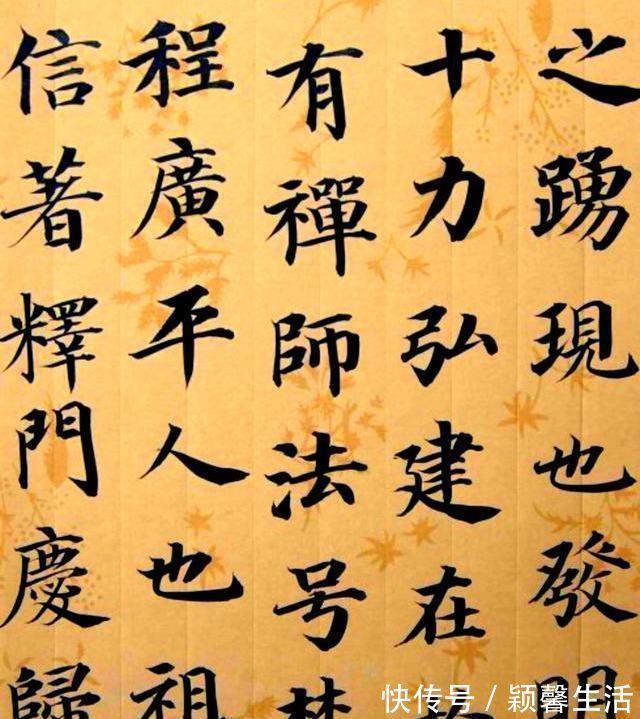 之踴現也發
十力弘建在
有禪師法号
程廣平人也祖
信著釋門慶歸
快传号 / 颖馨生活